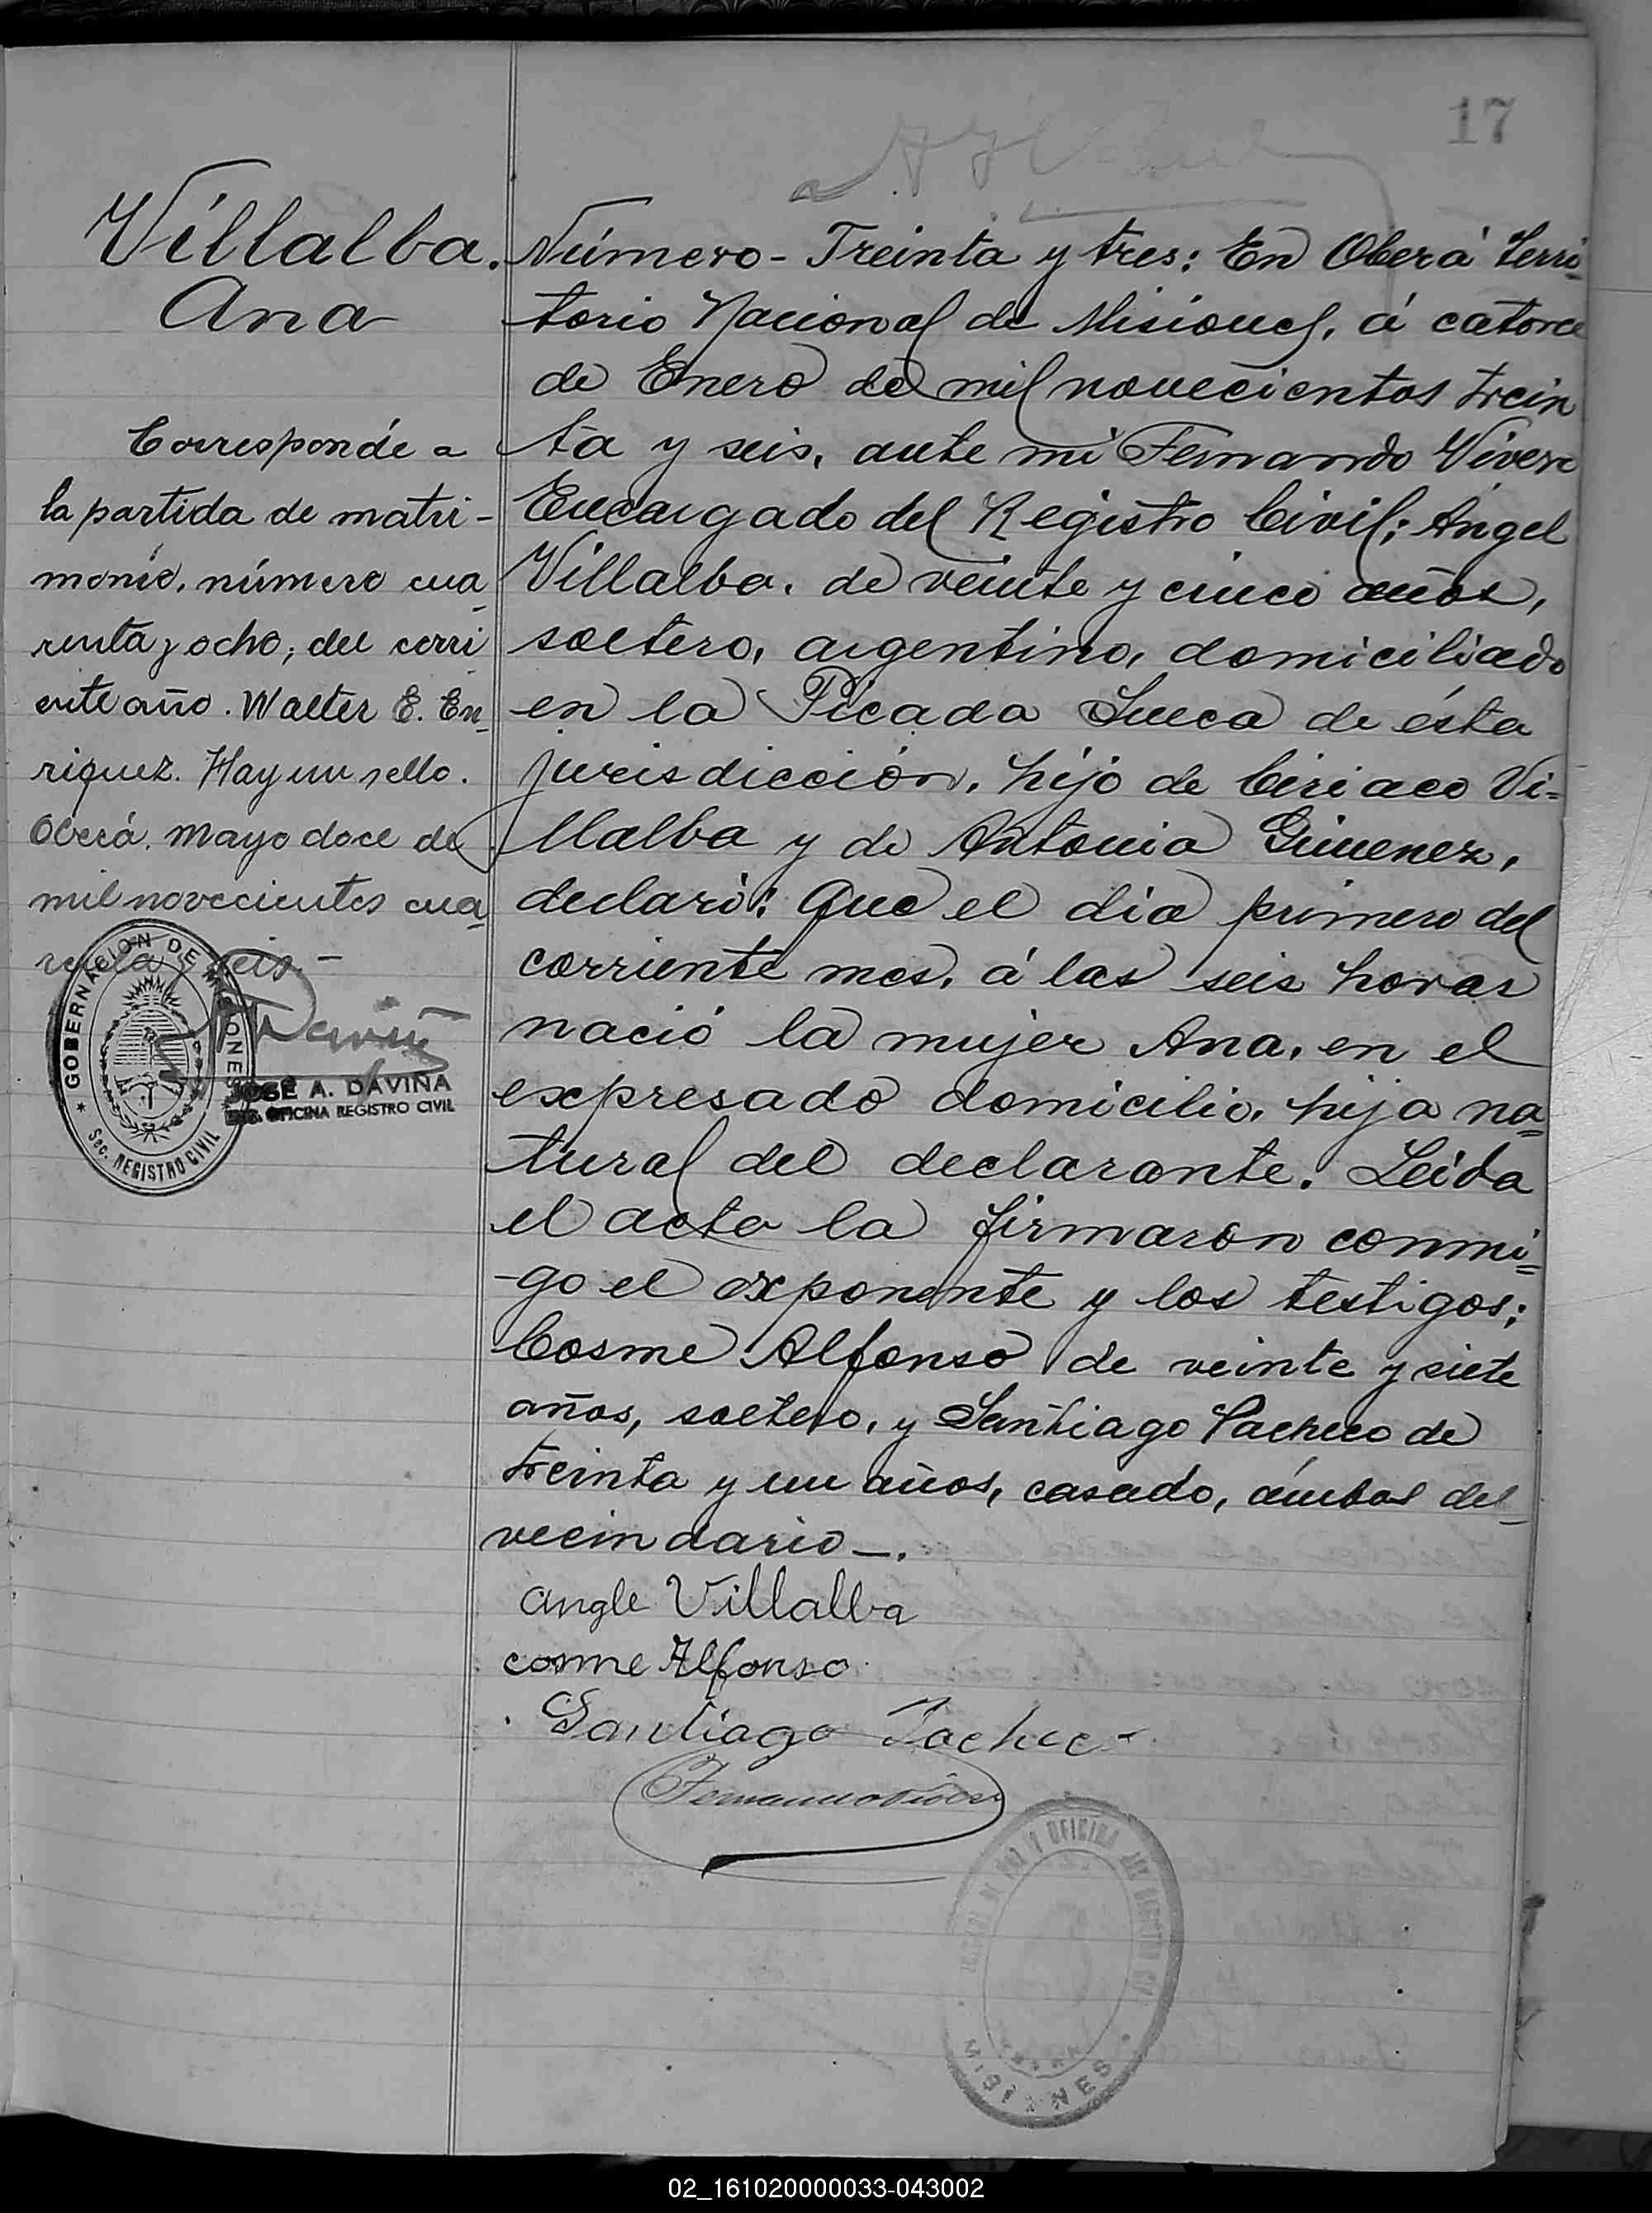 17
Villalba.
Ana
Corresponde a
la partida de matri-
monio, número cua
renta y ocho, del corri
ente año. Walter E. En
riquez. Hay un sello.
Oberá. Mayo doce de
mil novecientos cua
renta y seis.-
GOBERNACION DE MISIONES
Sec. REGISTRO CIVIL
JOSÉ A. DAVIÑA
OFICINA REGISTRO CIVIL
Número - Treinta y tres: En Oberá Terri-
torio Nacional de Misiones, á catorce
de Enero de mil novecientos trein
ta y seis, ante mi Fernando Vivero
Encargado del Registro Civil; Angel
Villalba, de veinte y cinco años,
soltero, argentino, domiciliado
en la Picada Sueca de ésta
jurisdicción, hijo de Ciriaco Vi-
llalba y de Antonia Gimenez,
declaró: Que el dia primero del
corriente mes, á las seis horas
nació la mujer Ana, en el
expresado domicilio, hija na
tural del declarante. Leida
el acta la firmaron conmi-
-go el exponente y los testigos;
Cosme Alfonso de veinte y siete
años, soltero, y Santiago Pacheco de
treinta y un años, casado, ámbos del
vecindario-.
angle Villalba
cosme Alfonso
Santiago Pacheco
OFICINA
MISIONES
02_161020000033-043002